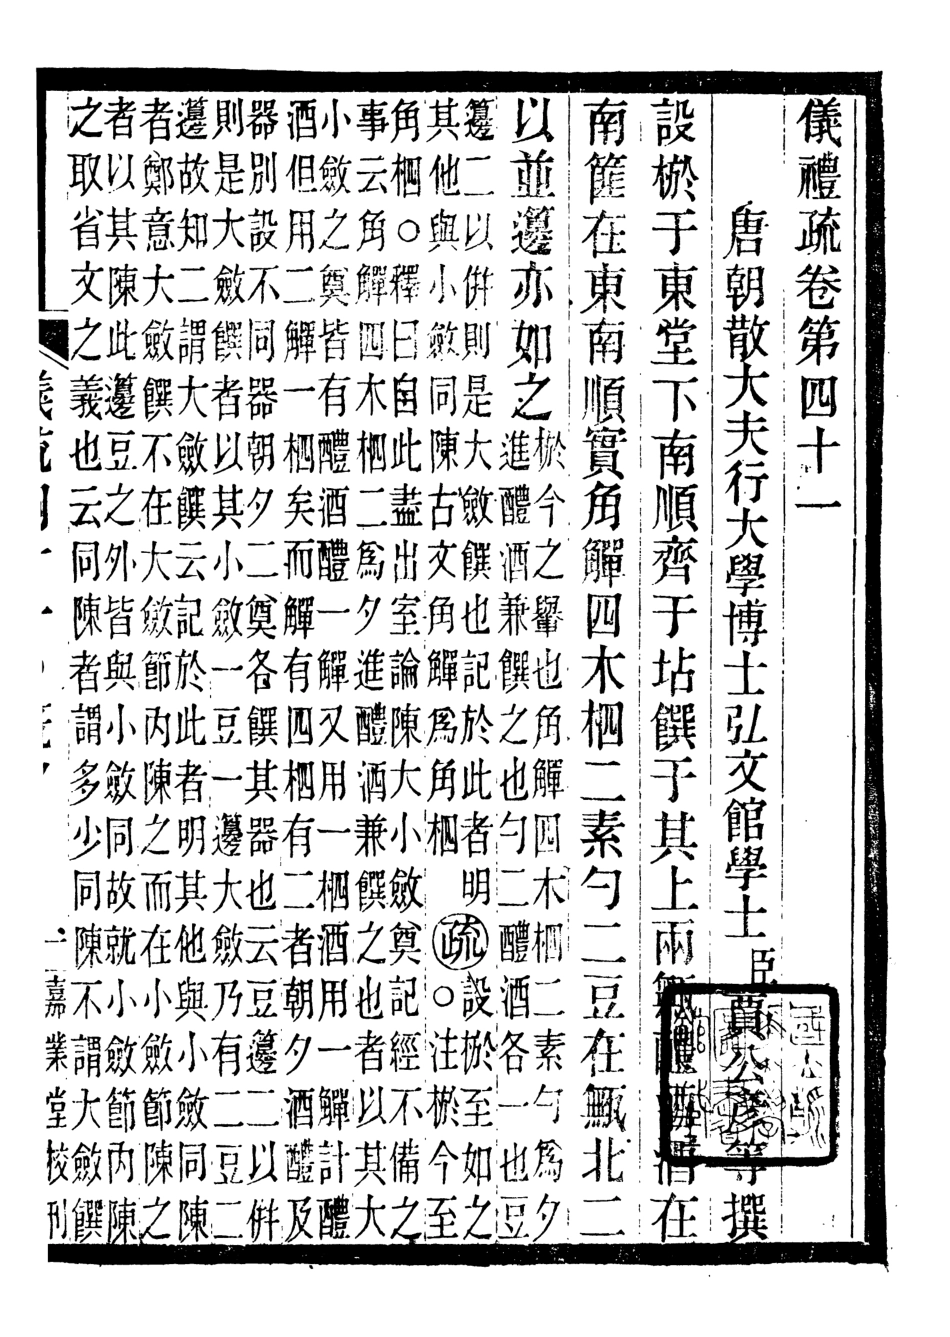 儀禮疏卷第四十一
唐朝散大夫行大學博士弘文館學士臣賈公彥等撰
設棜于東堂下南順齊于坫饌于其上兩甒醴酒酒在
南篚在東南順實角觶四木柶二素勺二豆在甒北二
以並籩亦如之棜今之轝也角觶四木柶二素勺爲夕
進醴酒兼饌之也勺二醴酒各一也豆
籩二以併則是大斂饌也記於此者明
其他與小斂同陳古文角觶爲角柶
疏設棜至如之
○注棜今至
角柶○釋曰自此盡出室論陳大小斂奠記經不備之
事云角觶四木柶二爲夕進醴酒兼饌之也者以其大
小斂之奠皆有醴酒醴一觶又用一柶酒用一觶計醴
酒但用二觶一柶矣而觶有四柶有二者朝夕酒醴及
器別設不同器朝夕二奠各饌其器也云豆籩二以併
則是大斂饌者以其小斂一豆一籩大斂乃有二豆二
籩故知二謂大斂饌云記於此者明其他與小斂同陳
者鄭意大斂饌不在大斂節内陳之而在小斂節陳之
者以其陳此籩豆之外皆與小斂同故就小斂節内陳
之取省文之義也云同陳者謂多少同陳不謂大斂饌
一 嘉業堂校刊